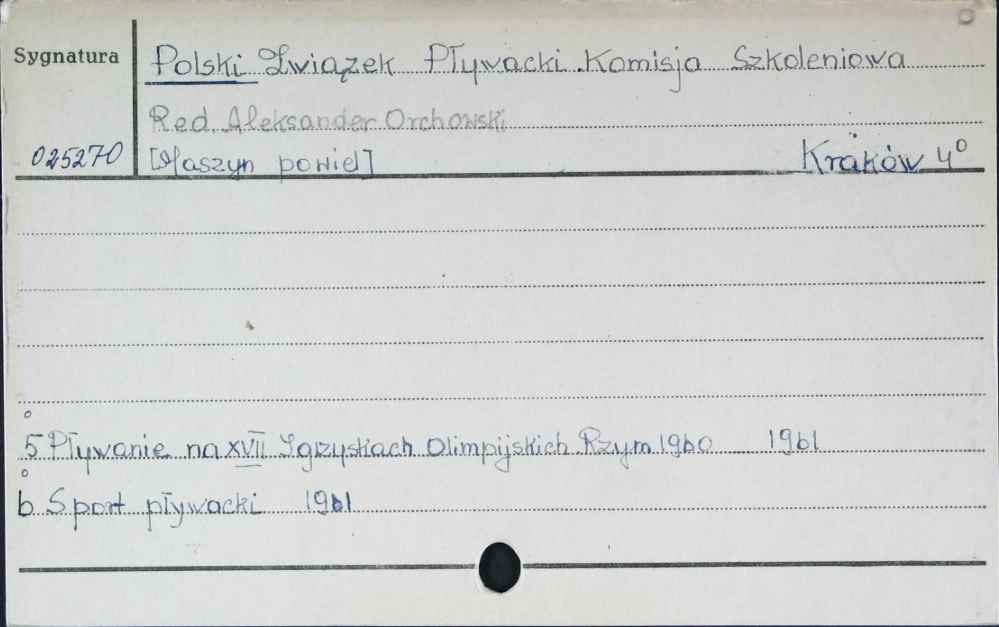 Sygnatura Polski Związek Pływacki Komisja Szkoleniowa
Red. Aleksander Orchowski
025270 [Maszyn powiel] Kraków 4°
5 Pływanie na XVII Igrzyskach Olimpijskich Rzym 1960 1961
6 Sport pływacki 1961